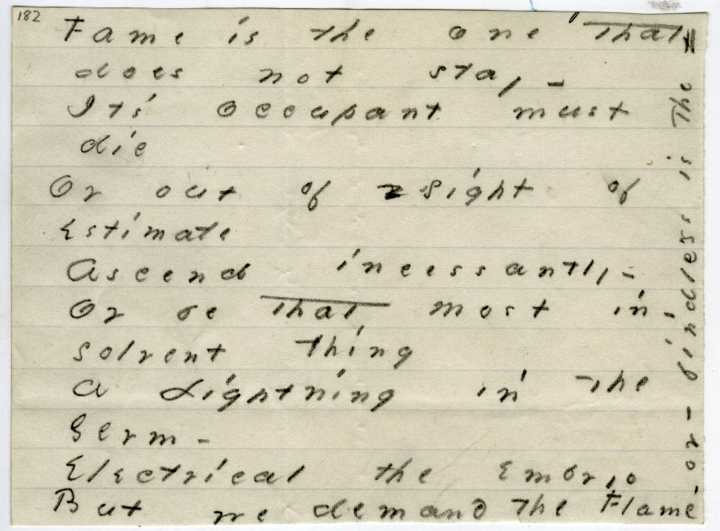 182
Fame is the one That
does not stay -
It's occupant must
die
Or out of sight of
Estimate
Ascend incessantly -
Or be That most in-
solvent thing
A Lightning in the
Germ -
Electrical the Embryo
But we demand the Flame
or - is The